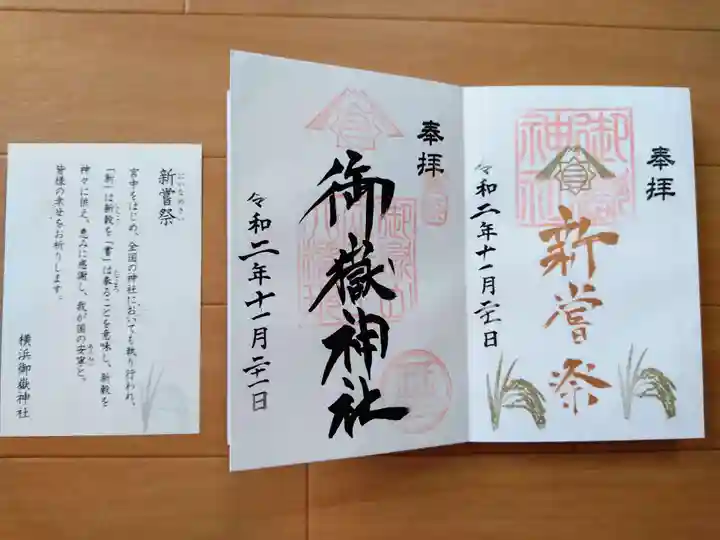 奉拝
新嘗祭
令和二年十一月二十一日
奉拝
御嶽神社
令和二年十一月二十一日
新嘗祭
にいなめさい
宮中をはじめ、全国の神社においても執り行われ、
「新」は新穀を「嘗」は奉ることを意味し、新穀を
神々に供え、恵みに感謝し、我が国の安寧と、
皆様の幸せをお祈りします。
横浜御嶽神社